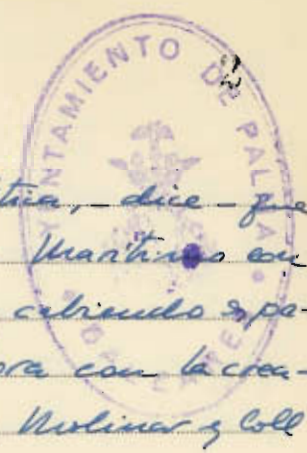 AYUNTAMIENTO DE PALMA
2
tria, - dice - que
Maritimo con
cabiendo espa-
ora con la crea-
Molinar y Coll